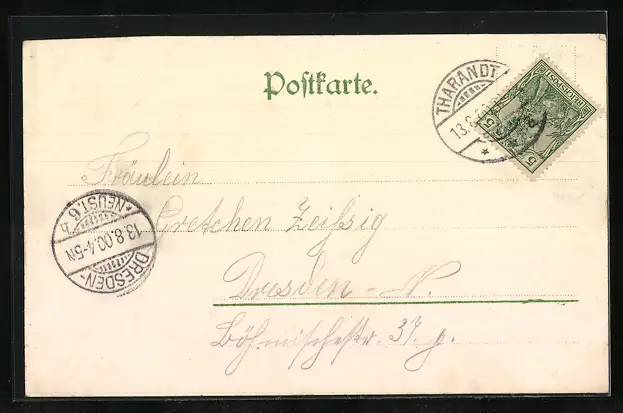 Postkarte.
THARANDT
13.8.
5
5
Fräulein
Gretchen Zeißig
Dresden-N.
Böhmischestr. 37. g.
DRESDEN-
NEUST. 6 h
13.8.00.4-5N